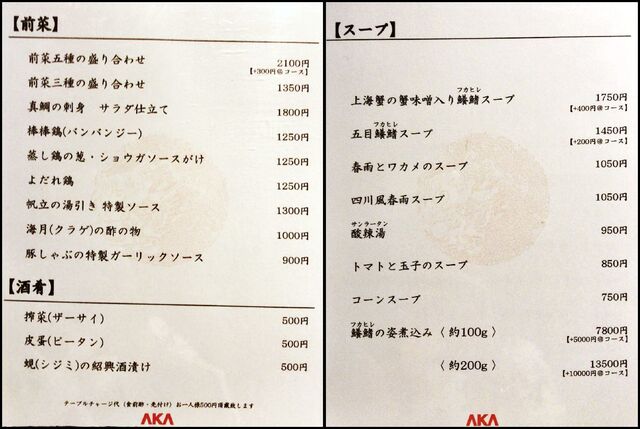 【前菜】
前菜五種の盛り合わせ 2100円
【+300円@コース】
前菜三種の盛り合わせ 1350円
真鯛の刺身 サラダ仕立て 1800円
棒棒鶏(バンバンジー) 1250円
蒸し鶏の葱・ショウガソースがけ 1250円
よだれ鶏 1250円
帆立の湯引き 特製ソース 1300円
海月(クラゲ)の酢の物 1000円
豚しゃぶの特製ガーリックソース 900円
【酒肴】
搾菜(ザーサイ) 500円
皮蛋(ピータン) 500円
蜆(シジミ)の紹興酒漬け 500円
テーブルチャージ代(食前酢・先付け)お一人様500円頂戴致します
AKA
【スープ】
フカヒレ
上海蟹の蟹味噌入り鱶鰭スープ 1750円
【+400円@コース】
フカヒレ
五目鱶鰭スープ 1450円
【+200円@コース】
春雨とワカメのスープ 1050円
四川風春雨スープ 1050円
サンラータン
酸辣湯 950円
トマトと玉子のスープ 850円
コーンスープ 750円
フカヒレ
鱶鰭の姿煮込み〈 約100g 〉 7800円
【+5000円@コース】
〈 約200g 〉 13500円
【+10000円@コース】
AKA